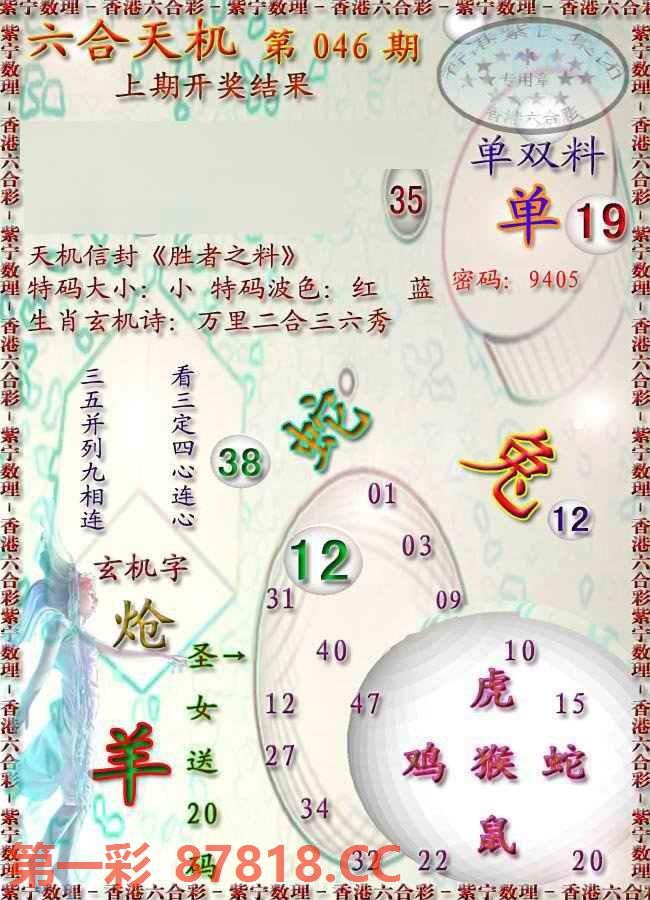 紫宁数理－香港六合彩－紫宁数理－香港六合彩－紫宁数理－香港六合彩
六合天机 第 046 期
上期开奖结果
专用章
香港六合彩
35
单双料
单 19
天机信封《胜者之料》
特码大小：小 特码波色：红 蓝
密码：9405
生肖玄机诗：万里二合三六秀
看三定四心连心
三五并列九相连
38
蛇
兔
12
01
12
03
玄机字
炝
31
09
圣→
女
送
20
码
40
10
虎
12
47
15
羊
27
鸡 猴 蛇
34
鼠
32
22
20
第一彩 87818.CC
紫宁数理－香港六合彩－紫宁数理－香港六合彩－紫宁数理－香港六合彩